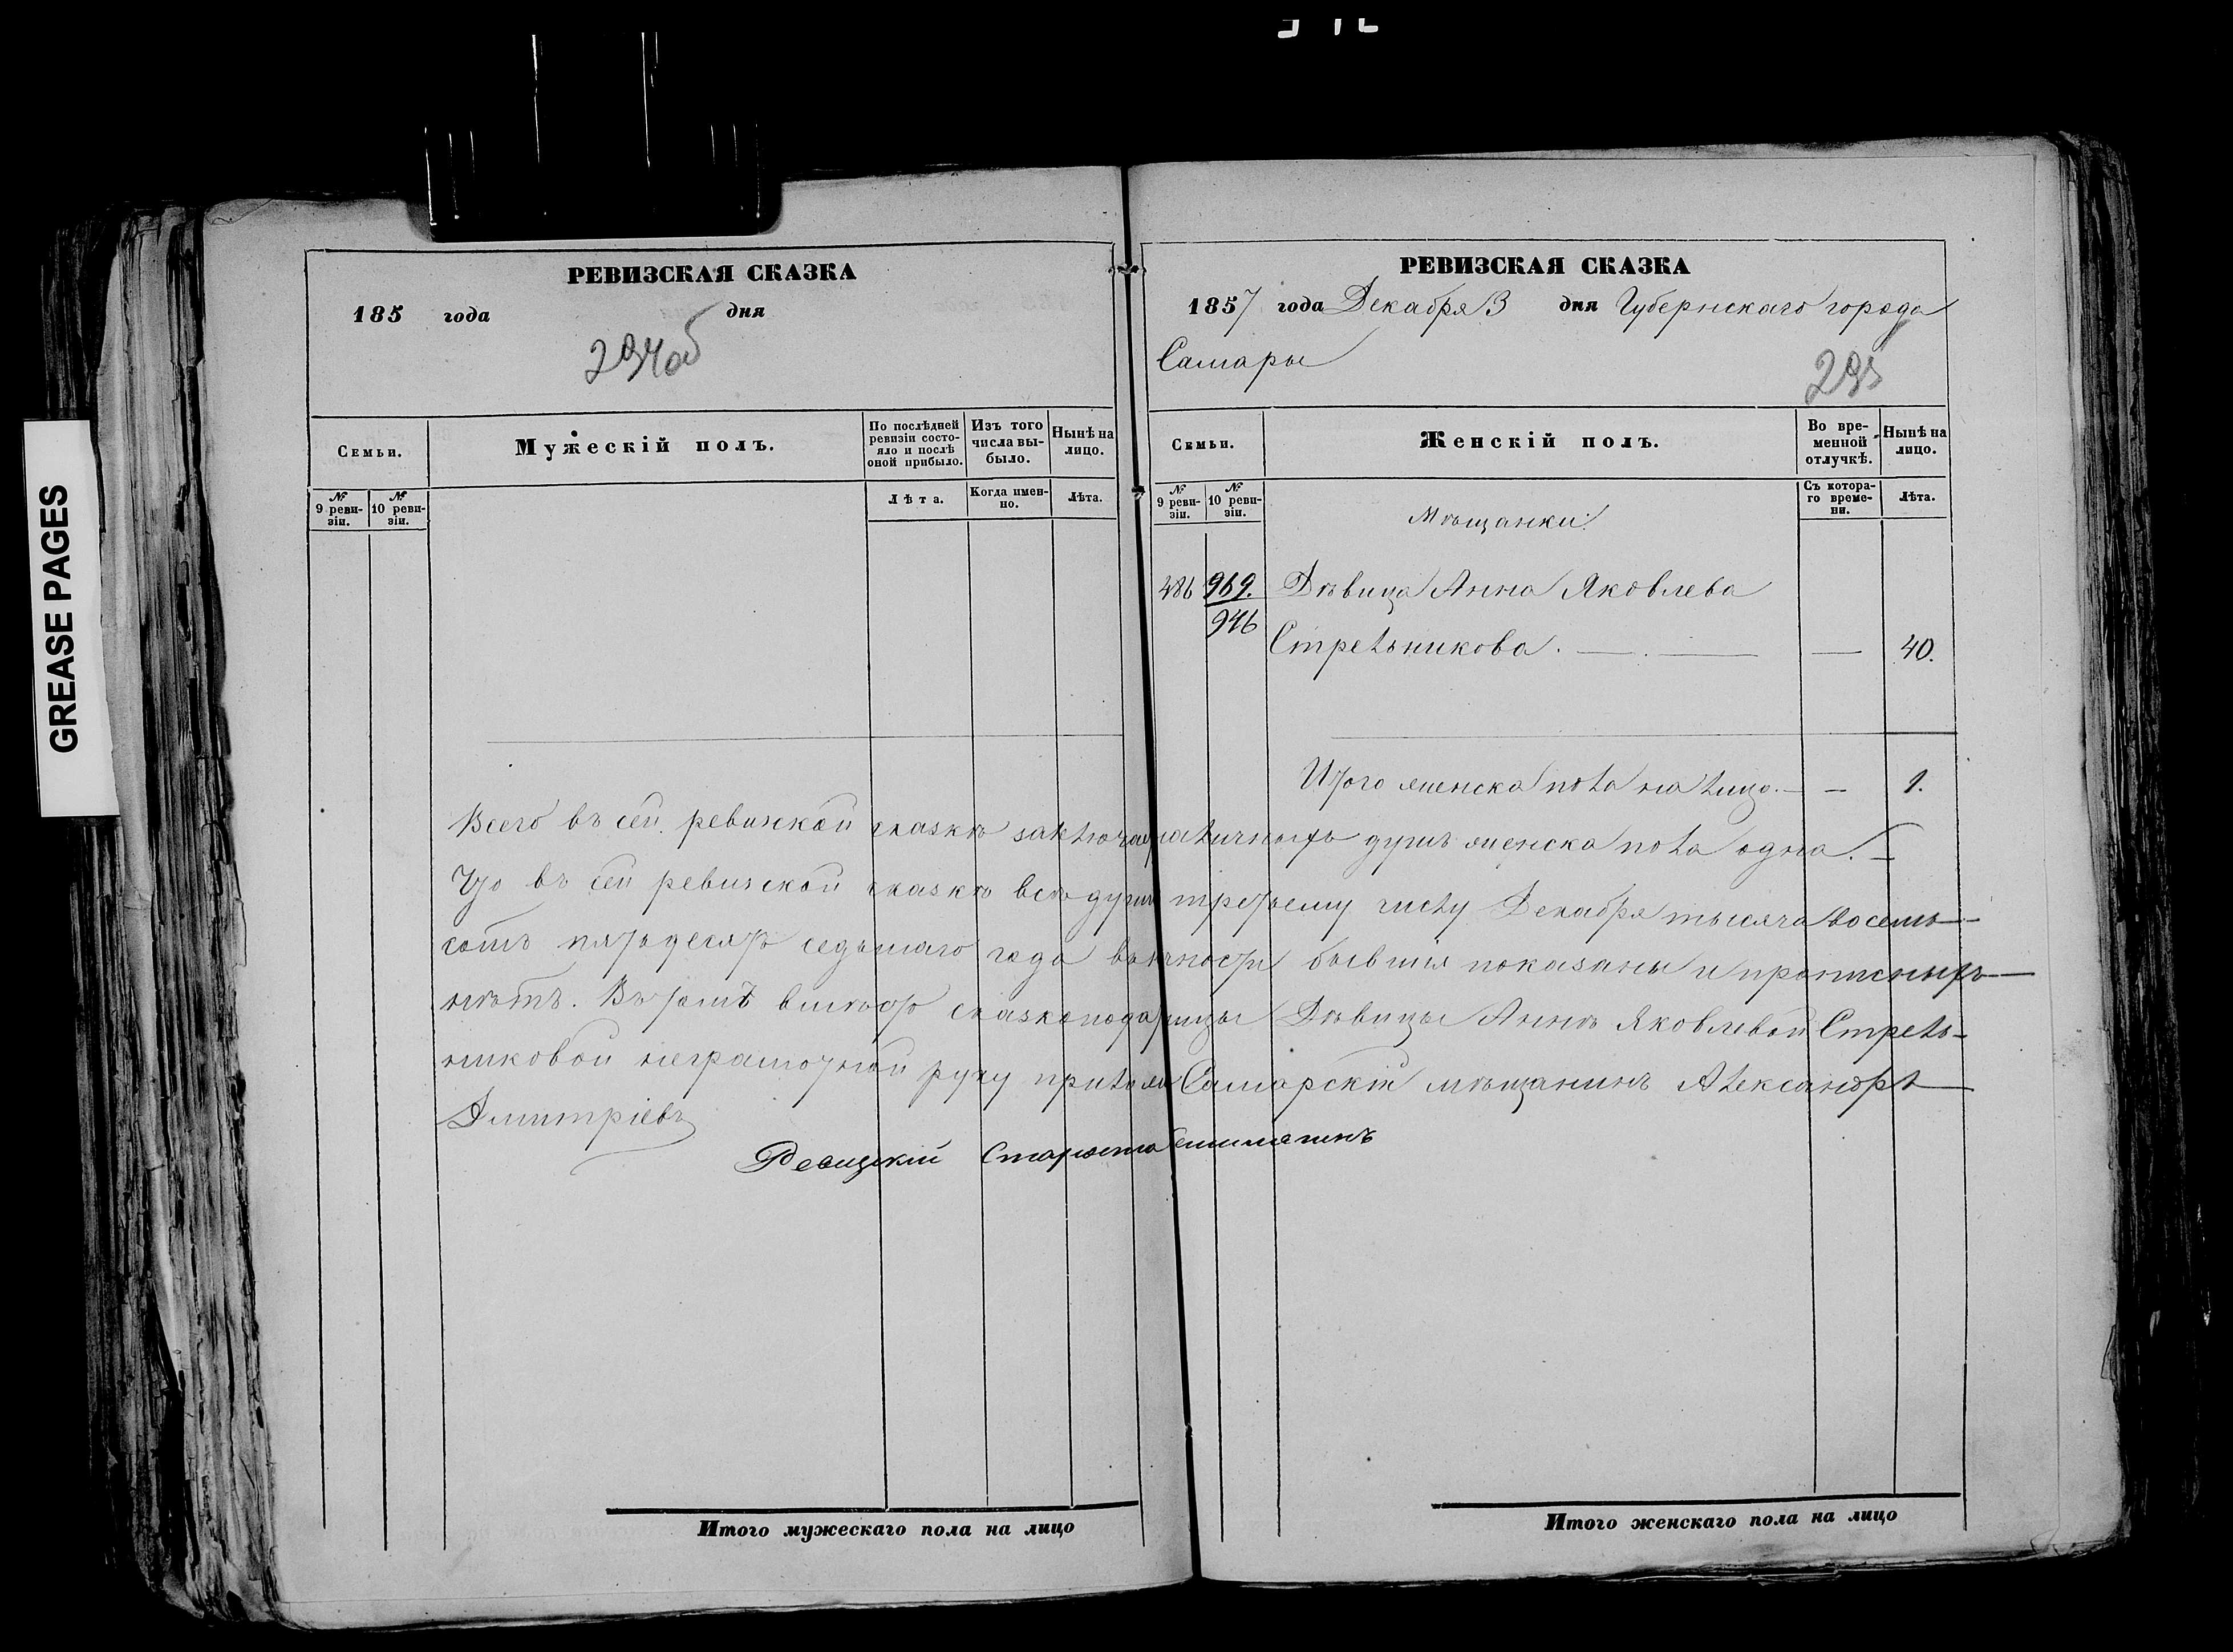 GREASE PAGES
РЕВИЗСКАЯ СКАЗКА
185 года дня
294об
Семьи.
Мужескій полъ.
По послѣдней ревизіи состояло и послѣ оной прибыло.
Изъ того числа выбыло.
Нынѣ на лицо.
№ 9 ревизіи.
№ 10 ревизіи.
Лѣта.
Когда именно.
Лѣта.
РЕВИЗСКАЯ СКАЗКА
1857 года Декабря 3 дня Губернскаго города
Самары
295
Семьи.
Женскій полъ.
Во временной отлучкѣ.
Нынѣ на лицо.
№ 9 ревизіи.
№ 10 ревизіи.
Съ котораго времени.
Лѣта.
Мѣщанки:
486 969. Дѣвица Анна Яковлева
946
Стрельникова. — — 40.
Итого женска пола на лицо. — — 1.
Всего въ сей ревизской сказкѣ заключа наличныхъ душъ женска пола одна. —
Что въ сей ревизской сказкѣ всѣ души третьему числу Декабря тысяча восемь-
сотъ пятьдесятъ седьмаго года въ бывшія показаны и прописныхъ —
нѣтъ. Въ томъ вмѣсто сказкоподательницы Дѣвицы Анны Яковлевой Стрель-
никовой неграмотной руку приложилъ Самарскій мѣщанинъ Александръ
Дмитріевъ
Ревизскій Староста
Итого мужескаго пола на лицо
Итого женскаго пола на лицо